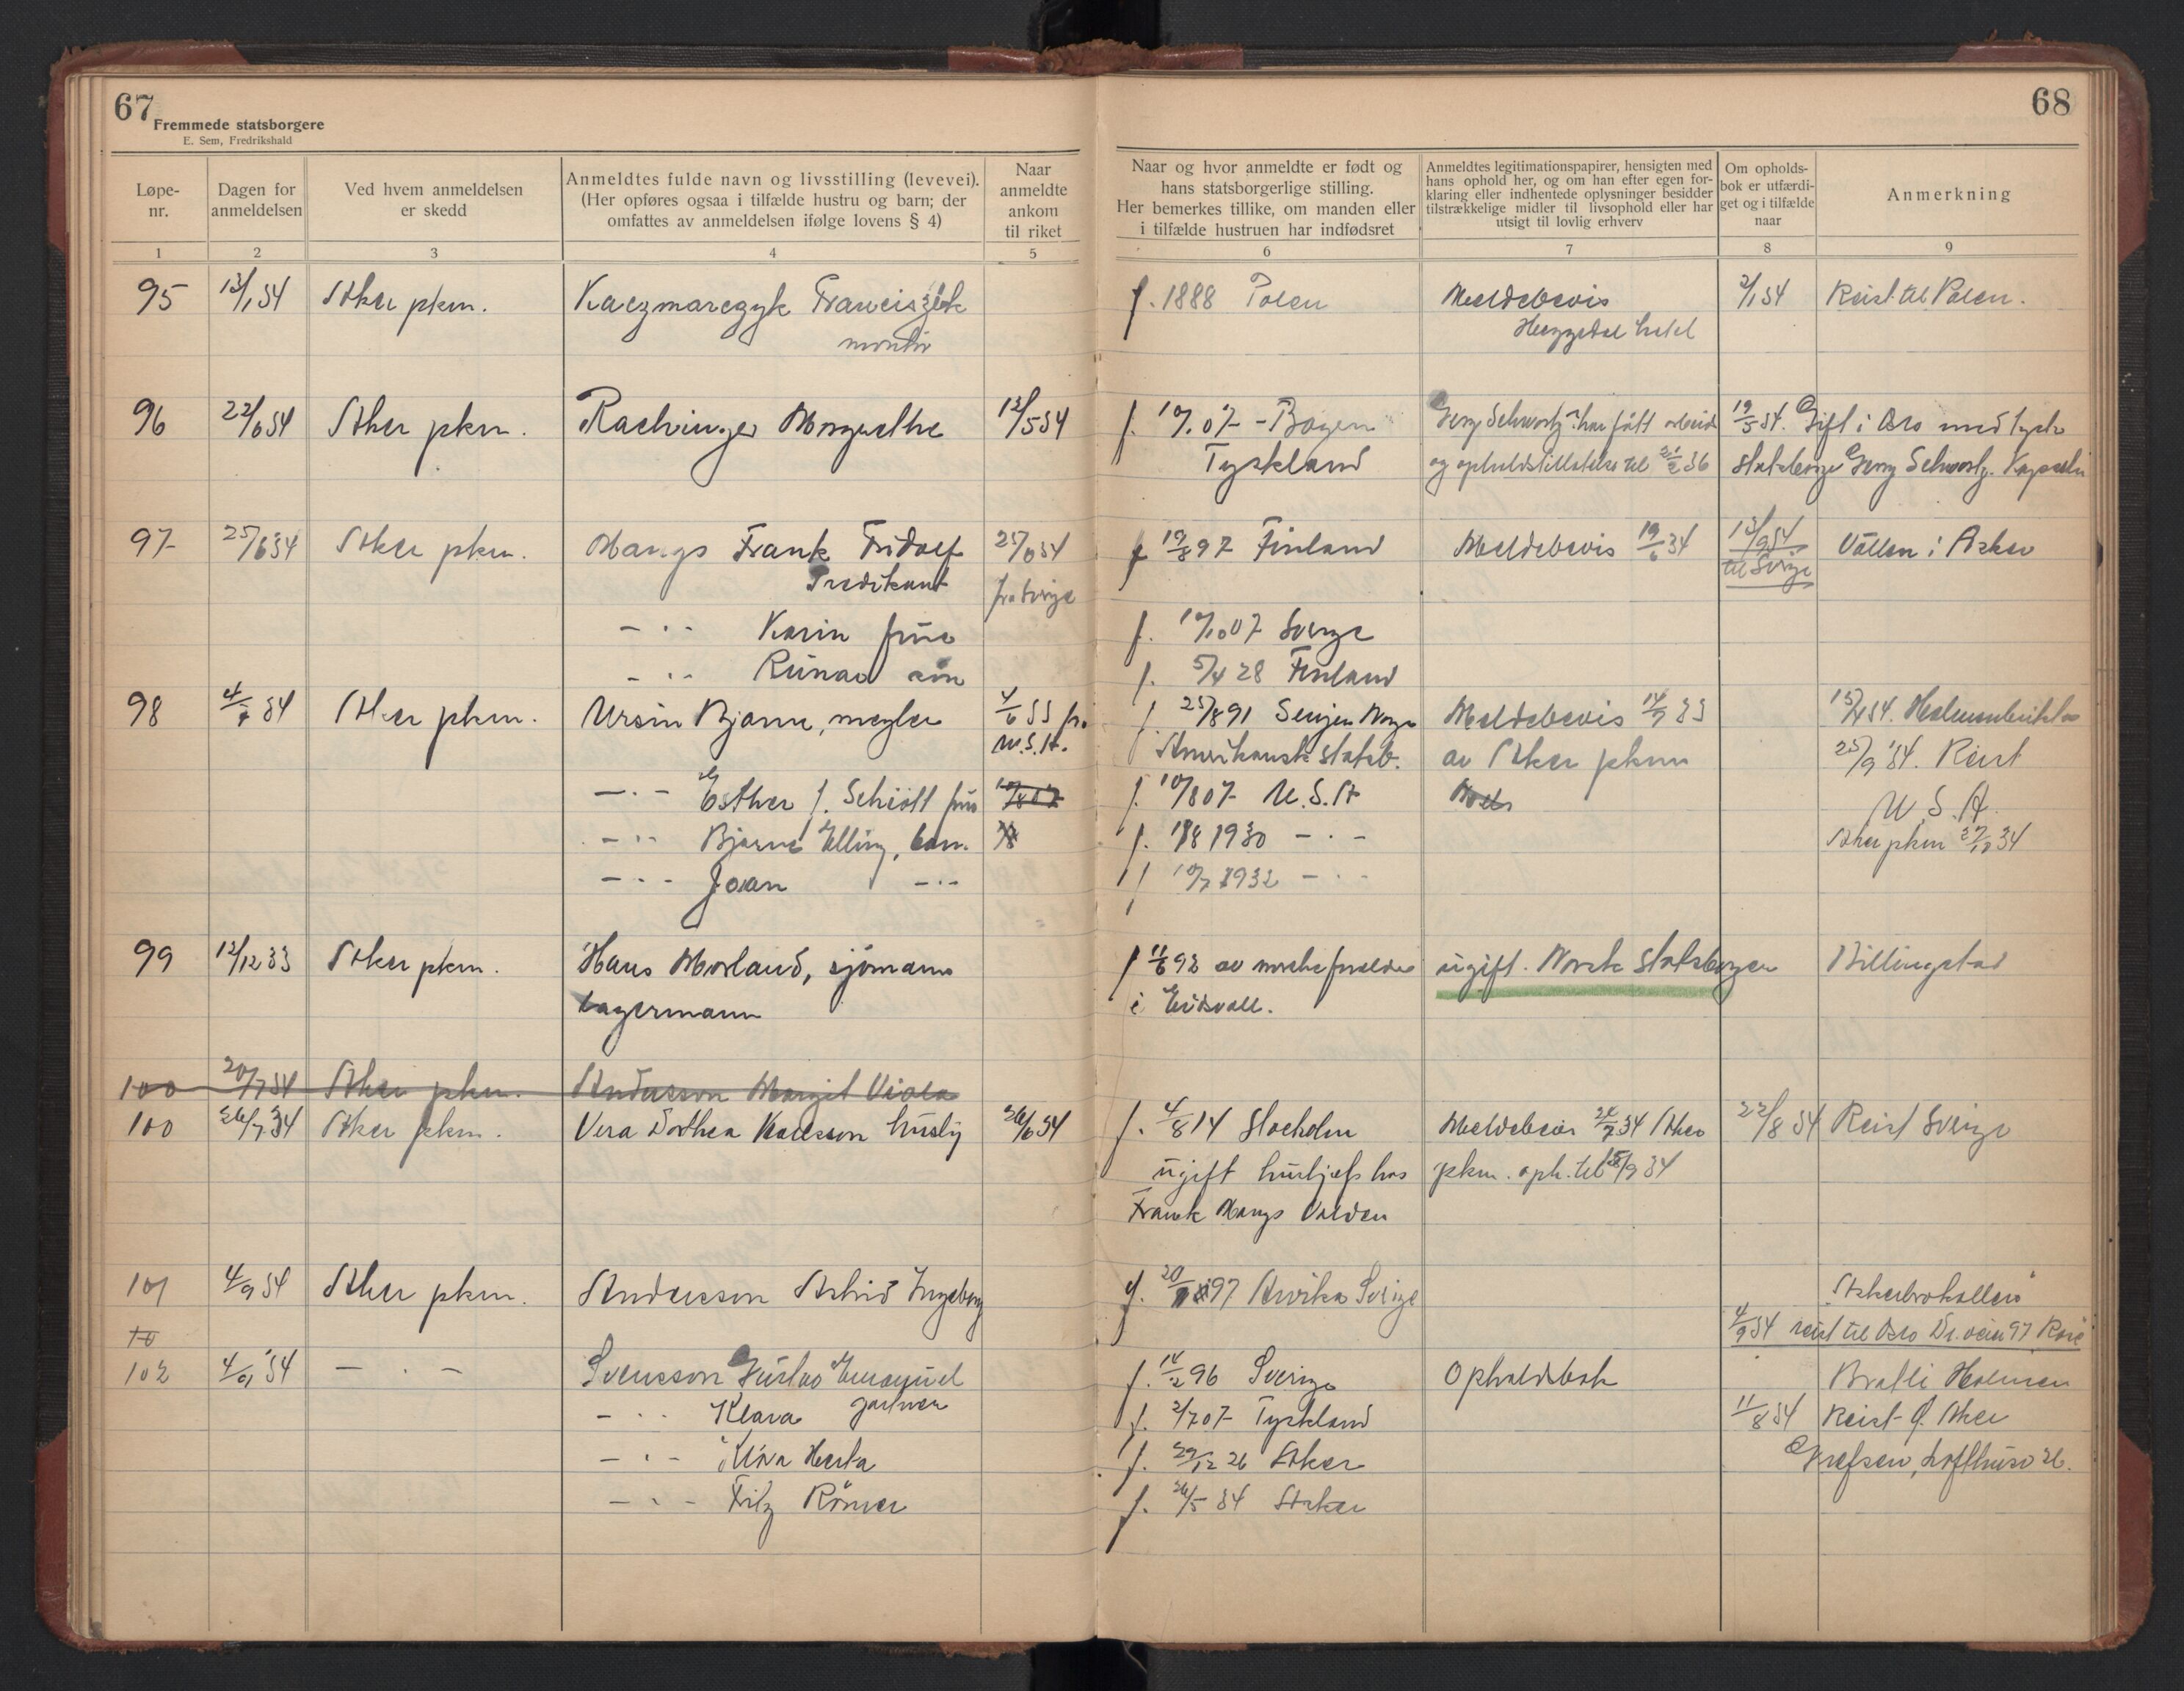 67
Fremmede statsborgere
E. Sem, Fredrikshald
68
Løpe-
nr.
Dagen for
anmeldelsen
Ved hvem anmeldelsen
er skedd
Anmeldtes fulde navn og livsstilling (levevei).
(Her opføres ogsaa i tilfælde hustru og barn; der
omfattes av anmeldelsen ifølge lovens § 4)
Naar
anmeldte
ankom
til riket
Naar og hvor anmeldte er født og
hans statsborgerlige stilling.
Her bemerkes tillike, om manden eller
i tilfælde hustruen har indfødsret
Anmeldtes legitimationspapirer, hensigten med
hans ophold her, og om han efter egen for-
klaring eller indhentede oplysninger besidder
tilstrækkelige midler til livsophold eller har
utsigt til lovlig erhverv
Om opholds-
bok er utfærdi-
get og i tilfælde
naar
Anmerkning
1 2 3 4 5 6 7 8 9
95 13/1 34 Aker pkm. Kaczmarczyk Franciszek f. 1888 Polen Meldebevis 2/1 34 Reist til Polen.
montør hotel
96 22/6 34 Aker pkm. Rachinger Margrethe 12/5 34 f. 07 - Bayern har fått arbeid 19/5 34. Gift i Oslo med tysk
Tyskland og opholdstillatelse til 36 statsborger Georg
97 25/6 34 Aker pkm. Mangs Frank Fridolf 25/6 34 f 19/8 97 Finland Meldebevis 19/6 34 13/9 34 Vållen i Asker
Predikant fra Sverge til Sverge
- . - Karin frue f. 07 Sverge
- . - Runar søn f. 5/4 28 Finland
98 34 Aker pkm. Ursin Bjarne, megler 4/6 33 fra f 25/8 91 Senjen Norge Meldebevis 14/7 33 34.
U.S.A. Amerikansk statsb. av Aker pkm 25/9 34. Reist
- . - Esther f. Schiött frue f. 10/8 07 U.S.A U.S.A.
- . - Bjarne Elling, barn. f. 1930 - . - Aker pkm 34
- . - Joan - . - f 1932 - . -
99 12/12 33 Aker pkm. Hans Morland, sjømann f 11/6 93 av norske foreldre ugift. Norsk statsborger Billingstad
Lagermann i Eidsvoll.
100 20/7 34 Aker pkm. Andersson Margit Viola
100 26/7 34 Aker pkm. Vera Dorthea Karlsson 26/6 34 f. 4/8 14 Stocholm Meldebevis 34 Aker 22/8 34 Reist Sverge
ugift hushjelp hos pkm. oph. til 34
Frank Mangs Valden
101 4/9 34 Aker pkm. Andersson Astrid Ingeborg f. 20/ 97 Arvika Sverge
10 4/9 34 reist til Oslo
102 4/9 34 - . - Svensson Gustav Emanuel f. 14/2 96 Sverige Opholdsbok Holmen
- . - Klara gartner f. 2/7 07 Tyskland 11/8 34 Reist Ø. Aker
- . - Herta f. 29/12 26 Asker Grefsen,
- . - Fritz f. 26/5 34 Asker